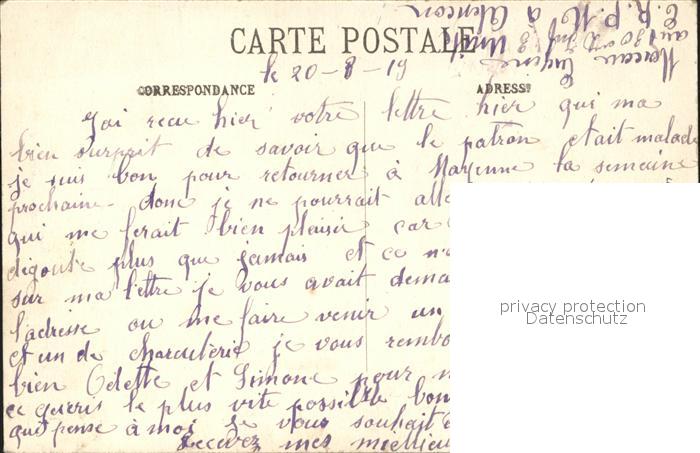 CARTE POSTALE
le 20-8-19
CORRESPONDANCE
ADRESSE
J'ai recu hier votre lettre hier qui ma
bien surprit de savoir que le patron etait malade
je suis bon pour retourner à Mayenne la semaine
prochaine. donc je ne pourrait alle
qui me ferait bien plaisir car
digouté plus que jamais et ce n'e
sur ma lettre je vous avait dema
l'adresse ou me faire venir un
et un de charcuterie je vous rembo
bien Odette et Simone pour m
le plus vite possible bon
qui pense à moi je vous souhait
Recevez mes meilleu
Eugène
C. R. P. N à Alencon
privacy protection
Datenschutz